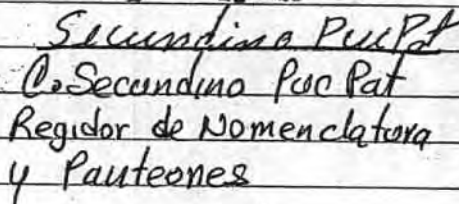 Secundino Puc Pat
C. Secundino Puc Pat
Regidor de Nomenclatura
y Panteones